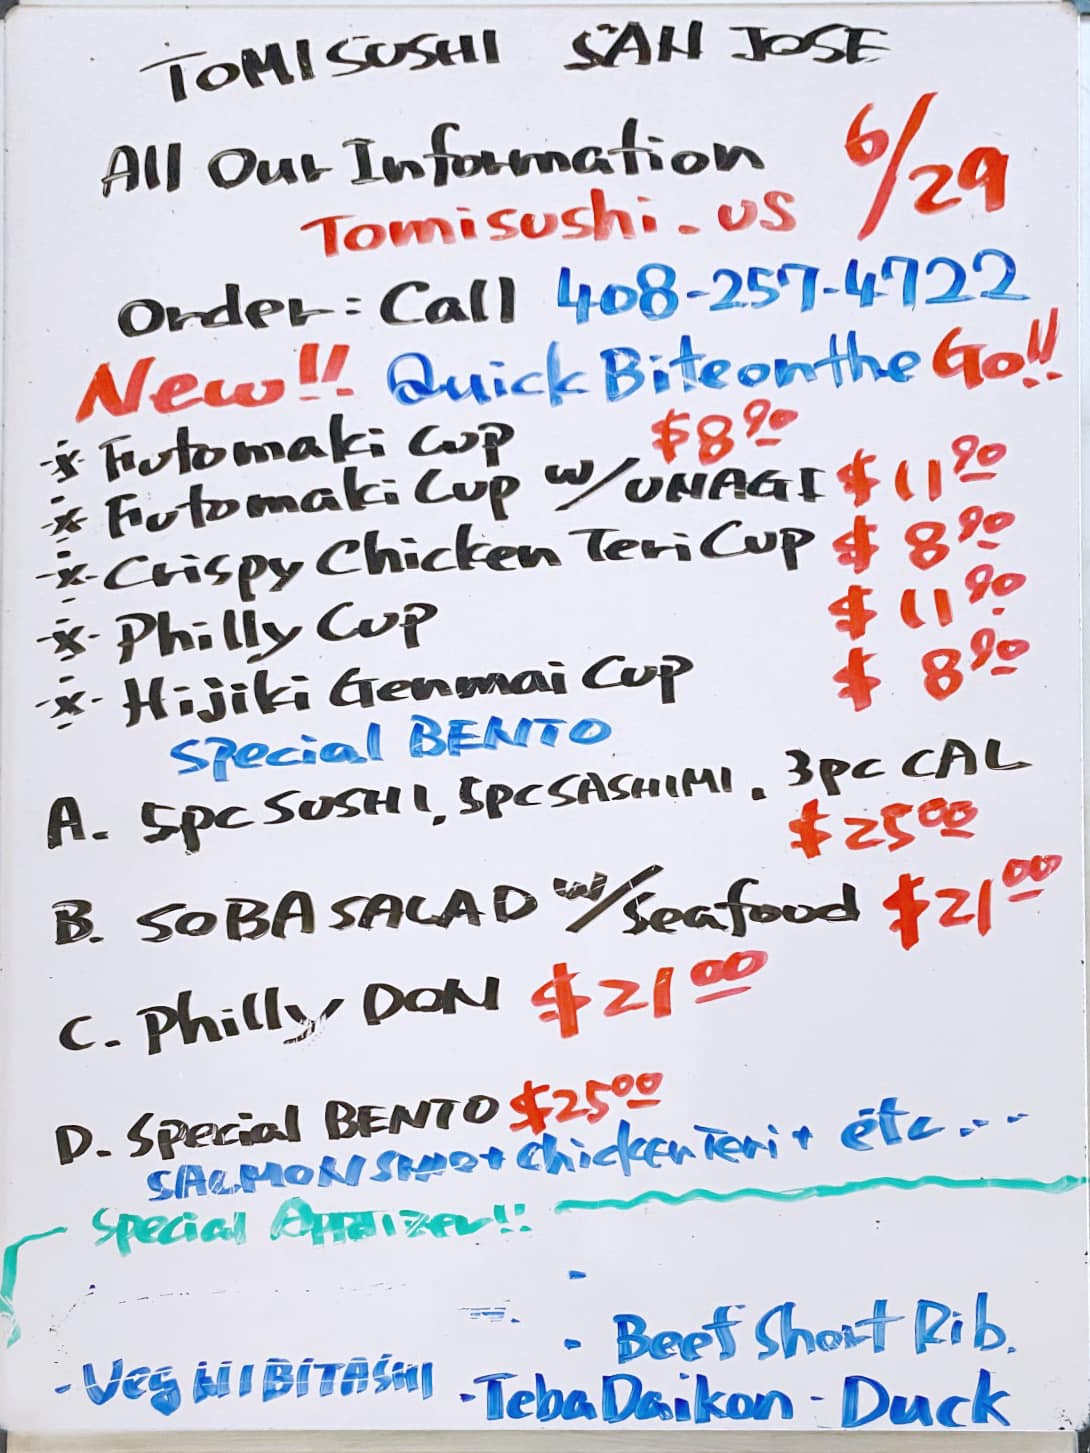 TOMISUSHI SAN JOSE
All Our Information 6/29
Tomisushi.us
Order: Call 408-257-4722
New!! Quick Bite on the Go!!
Futomaki Cup $8.90
Futomaki Cup w/UNAGI $11.90
Crispy Chicken Teri Cup $8.90
Philly Cup $11.90
Hijiki Genmai Cup $8.90
Special BENTO
A. 5pc SUSHI, 5pc SASHIMI. 3pc CAL
$25.00
B. SOBA SALAD w/Seafood $21.00
C. Philly DON $21.00
D. Special BENTO $25.00
SALMON + Chicken Teri + etc...
Special Appetizer!!
- Beef Short Rib.
- Veg NIBITASHI - Teba Daikon - Duck